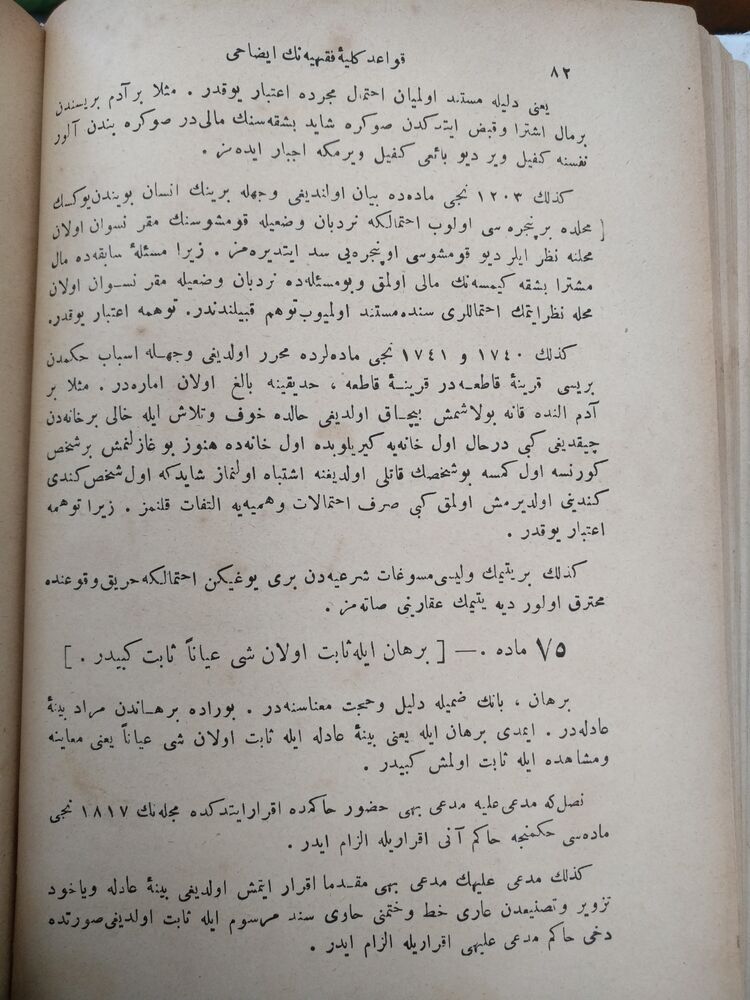 ٨٢
قواعد كلیۀ فقهیه‌نك ایضاحی
یعنی دلیله مستند اولمیان احتمال مجرده اعتبار یوقدر . مثلا بر آدم بریسندن
بر مال اشترا وقبض ایتدكدن صوكره شاید بشقه‌سنك مالی‌در صوكره بندن آلور
نفسنه كفیل ویر دیو بائعی كفیل ویرمكه اجبار ایده‌مز .
كذلك ١٢٠٣ نجی ماده‌ده بیان اولندیغی وجهله برینك انسان بویندن یوكسك
[ محلده بر پنجره سی اولوب احتمالكه نردبان وضعیله قومشوسنك مقر نسوان اولان
محلنه نظر ایلر دیو قومشوسی او پنجره‌یی سد ایتدیره‌مز . زیرا مسئلۀ سابقه‌ده مال
مشترا بشقه كیمسه‌نك مالی اولمق وبومسئله‌ده نردبان وضعیله مقر نسـوان اولان
محله نظر ایتمك احتماللری سنده مستند اولمیوب توهم قبیلندندر. توهمه اعتبار یوقدر.
كذلك ١٧٤٠ و ١٧٤١ نجی ماده‌لرده محرر اولدیغی وجهـله اسباب حكمدن
بریسی قرینۀ قاطعـه‌در قرینـۀ قاطعه ، حدیقینه بالغ اولان اماره‌در . مثلا بر
آدم النده قانه بولاشمش بیچـاق اولدیغی حالده خوف وتلاش ایله خالی بر خانه‌دن
چیقدیغی كبی درحال اول خانه‌یه كیریلوبده اول خانه‌ده هنوز بوغازلنمش بر شخص
كورنسه اول كمسه بو شخصك قاتلی اولدیغنه اشتباه اولنماز شایدكه اول شخص كندی
كندینی اولدیرمش اولمق كبی صرف احتمالات وهمیه‌یه التفات قلنمز . زیرا توهمه
اعتبار یوقدر .
كذلك بر یتیمك ولیسی مسوغات شرعیه‌دن بری یوغیكن احتمالكه حریق وقوعنده
محترق اولور دیه یتیمك عقارینی صاته‌مز .
٧٥ ماده .— [ برهان ایله ثابت اولان شی عیاناً ثابت كبیدر . ]
برهان ، بانك ضمیله دلیل وحجت معناسنه‌در . بوراده برهـاندن مراد بینۀ
عادله‌در . ایمدی برهان ایله یعنی بینۀ عادله ایله ثابت اولان شی عیاناً یعنی معاینه
ومشاهده ایله ثابت اولمش كبیدر .
نصل‌كه مدعی علیه مدعی بهی حضور حاكمده اقرار ایتدكده مجله‌نك ١٨١٧ نجی
ماده‌سی حكمنجه حاكم آنی اقراریله الزام ایدر .
كذلك مدعی علیهك مدعی بهی مقـدما اقرار ایتمش اولدیغی بینۀ عادله ویاخود
تزویر وتصنیعدن عاری خط وختمنی حاوی سند مرسوم ایله ثابت اولدیغی صورتده
دخی حاكم مدعی علیهی اقراریله الزام ایدر .